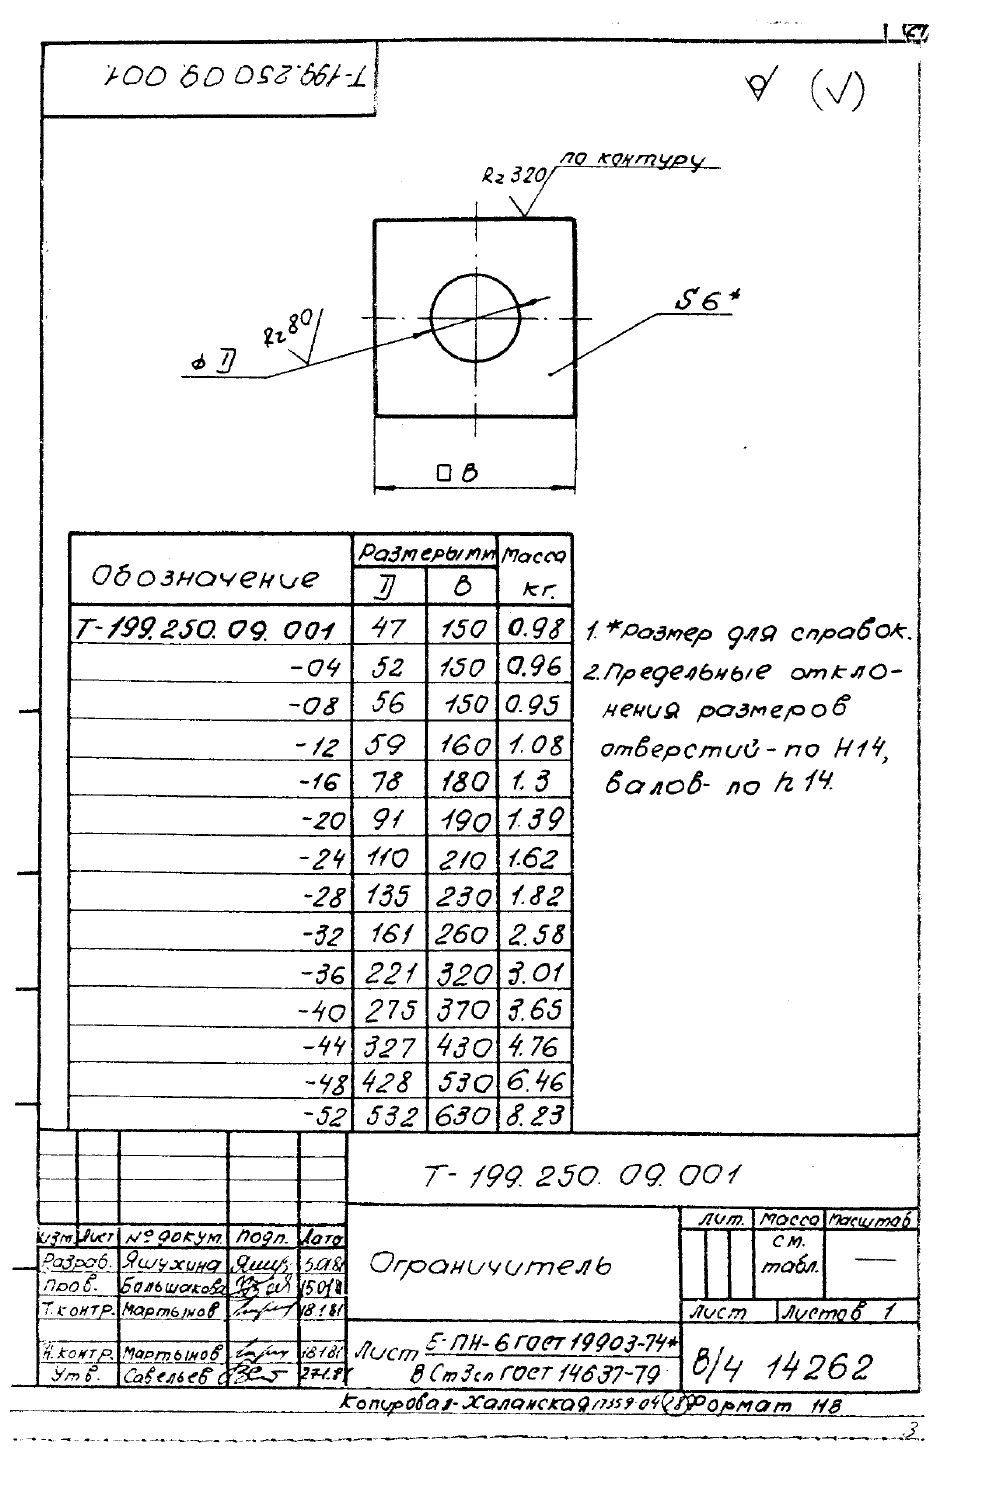 Т-199.250.09.001
(√)
по контуру
Rz 320
S 6*
Rz 80
⌀ D
□ В
Обозначение Размеры мм Масса кг.
D В
Т-199.250.09.001 47 150 0.98
-04 52 150 0.96
-08 56 150 0.95
-12 59 160 1.08
-16 78 180 1.3
-20 91 190 1.39
-24 110 210 1.62
-28 135 230 1.82
-32 161 260 2.58
-36 221 320 3.01
-40 275 370 3.65
-44 327 430 4.76
-48 428 530 6.46
-52 532 630 8.23
1. *Размер для справок.
2. Предельные откло-
нения размеров
отверстий - по Н14,
валов - по h14.
Т-199.250.09.001
Изм Лист № докум. Подп. Дата
Разраб. Яшухина
Пров. Большакова
Т.контр. Мартынов 18.1.81
Н.контр. Мартынов 18.1.81
Утв. Савельев
Ограничитель
Лит. Масса Масштаб
см.
табл. —
Лист Листов 1
Лист Б-ПН-6 ГОСТ 19903-74*
В Ст3сп ГОСТ 14637-79
В/Ч 14262
Копировал - Халанская Формат 11В
3